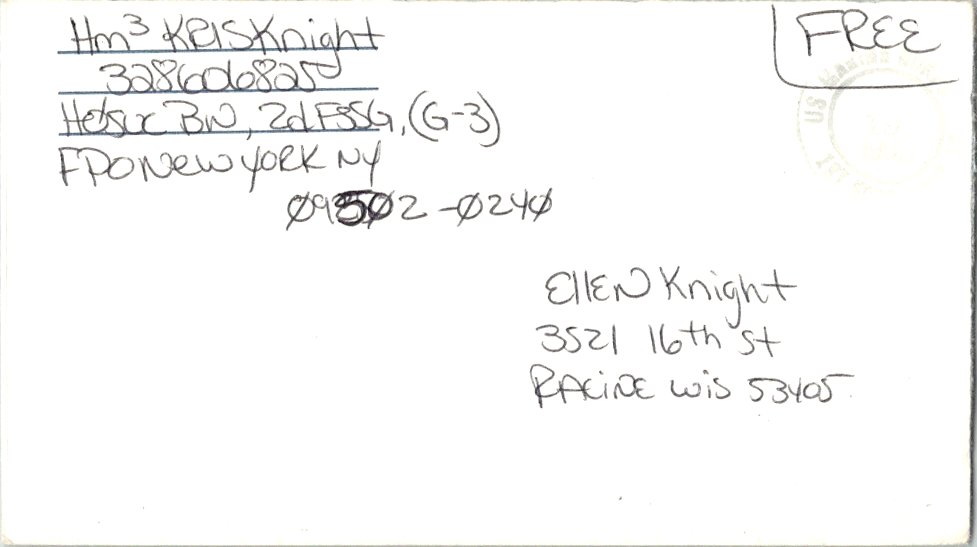 Hm3 KRIS Knight
FREE
328606825
H&S Bn, 2d FSSG, (G-3)
FPO New York NY
09502-0240
US Marine
Ellen Knight
3521 16th St
Racine Wis 53405